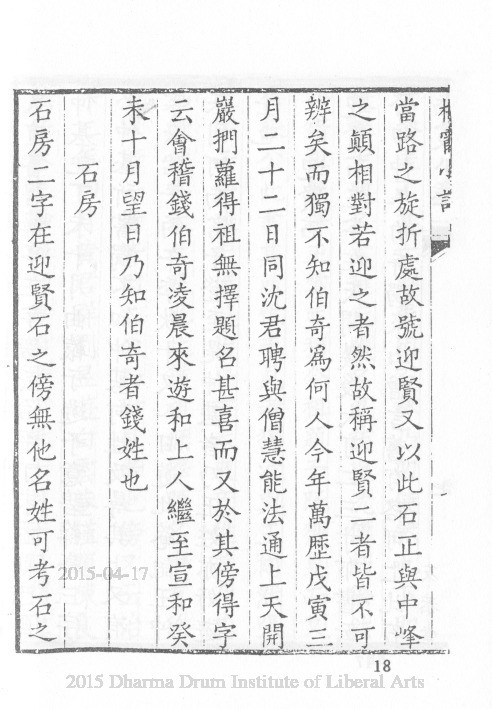 當路之旋折處故號迎賢又以此石正與中峰
之顛相對若迎之者然故稱迎賢二者皆不可
辨矣而獨不知伯奇爲何人今年萬歷戊寅三
月二十二日同沈君聘與僧慧能法通上天開
巖捫蘿得祖無擇題名甚喜而又於其傍得字
云會稽錢伯奇凌晨來遊和上人繼至宣和癸
未十月望日乃知伯奇者錢姓也
石房
石房二字在迎賢石之傍無他名姓可考石之
2015-04-17
18
2015 Dharma Drum Institute of Liberal Arts